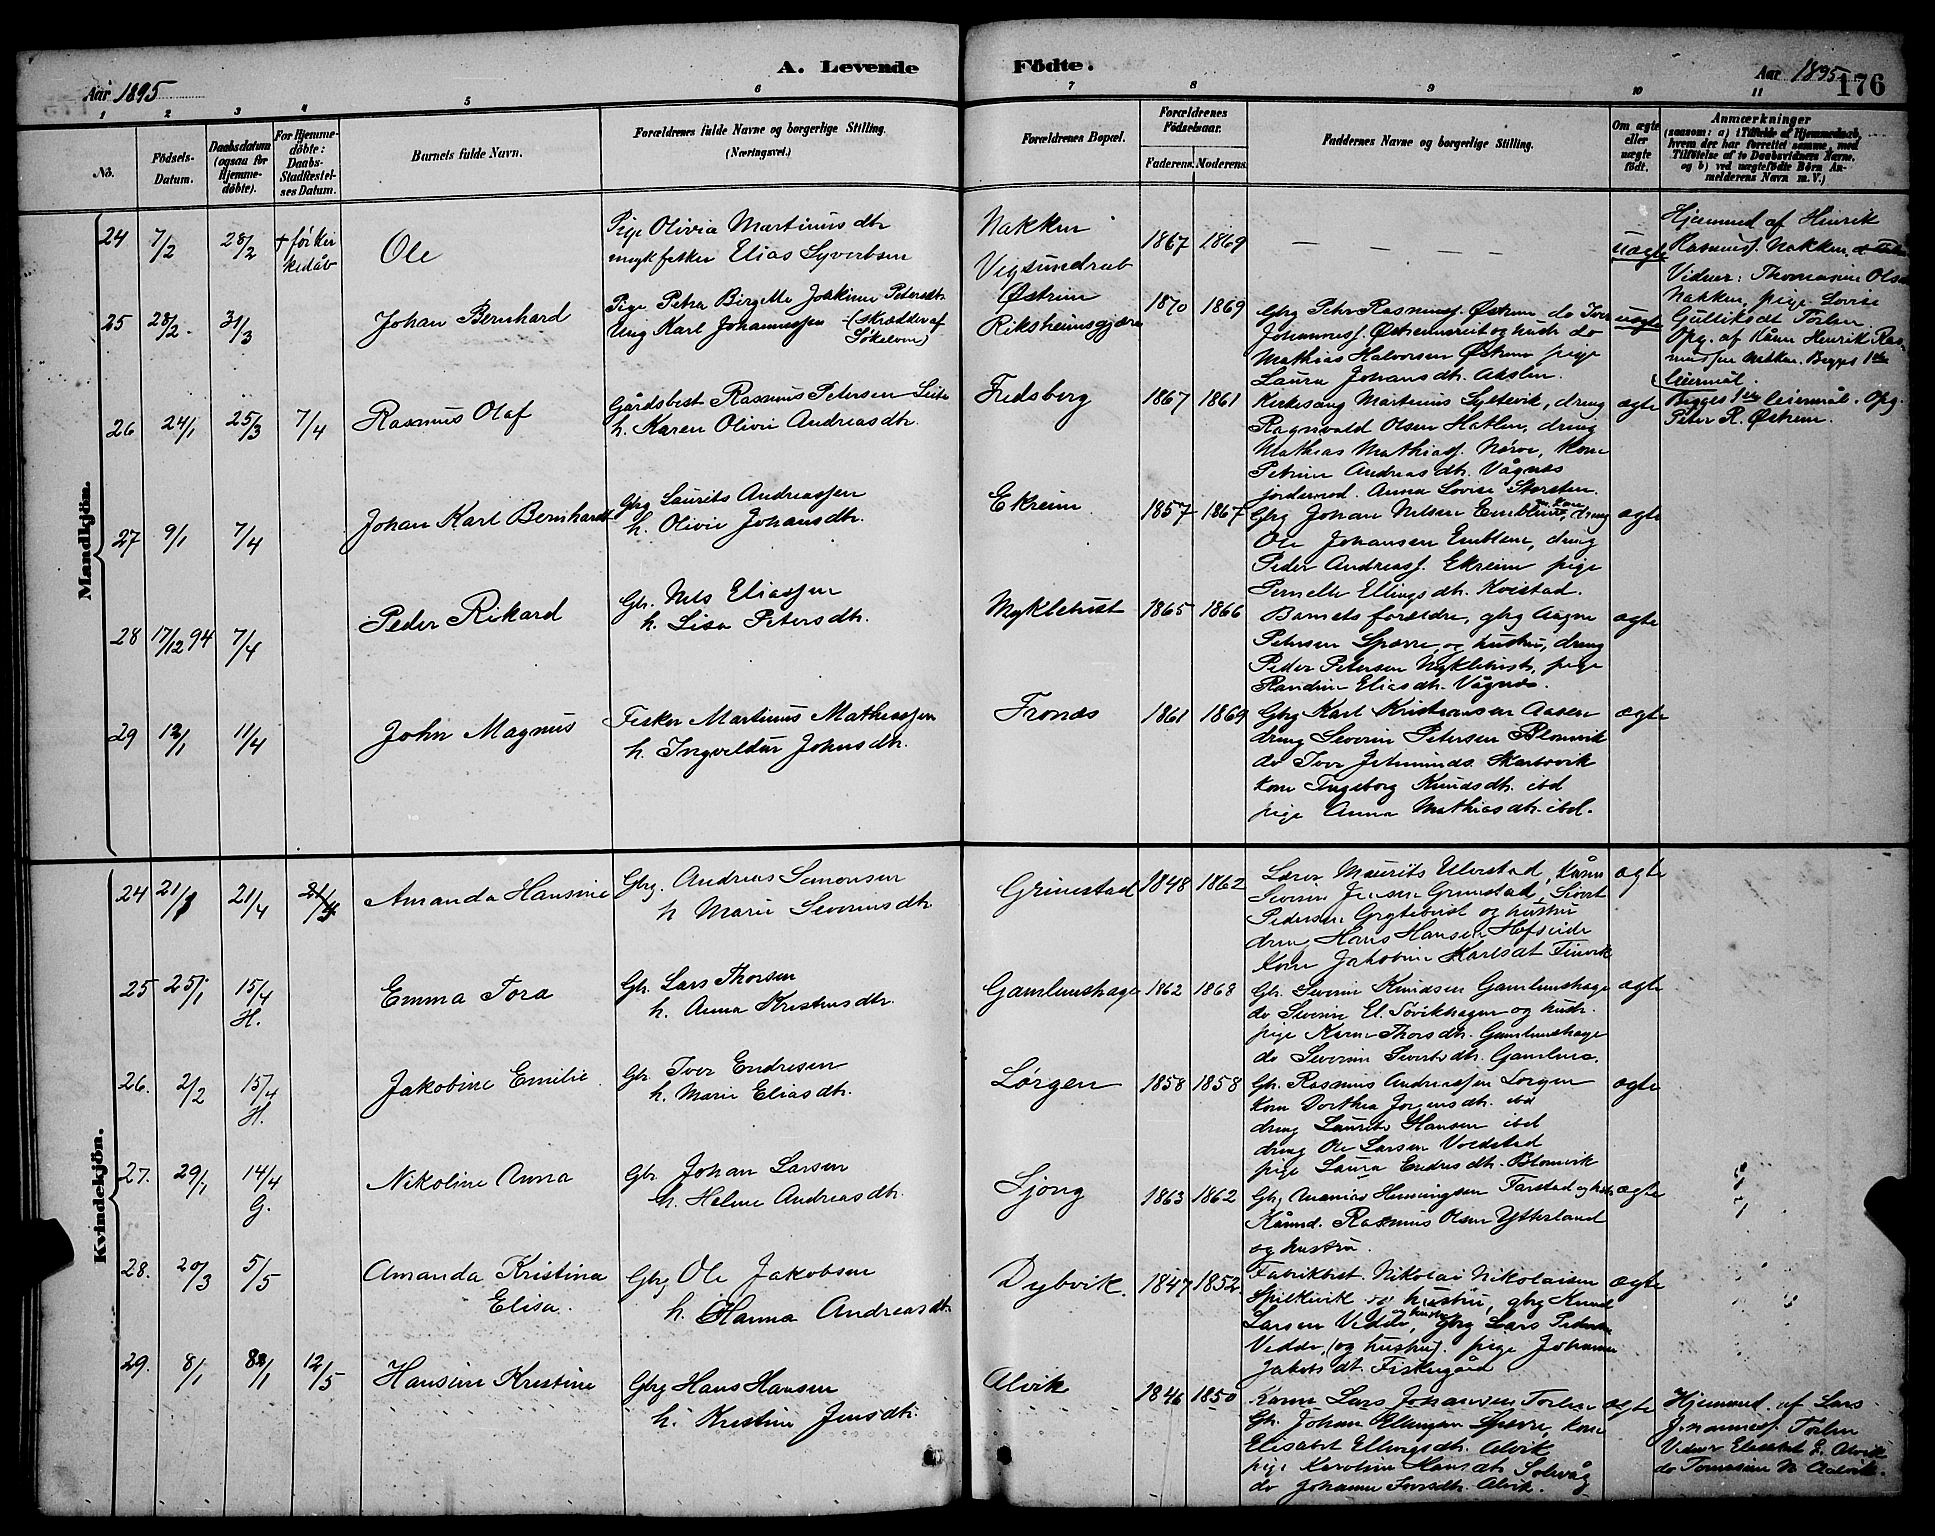 Aar 1895
A. Levende Födte.
Aar 1895
176
1 2 3 4 5 6 7 8 9 10 11
No.
Födsels-Datum.
Daabsdatum (ogsaa for Hjemme-döbte).
For Hjemme-döbte: Daabs-Stadfæstel-ses Datum.
Barnets fulde Navn.
Forældrenes fulde Navne og borgerlige Stilling. (Næringsvei.)
Forældrenes Bopæl.
Forældrenes Födselsaar.
Faderens. Moderens.
Faddernes Navne og borgerlige Stilling.
Om ægte eller uægte födt.
Anmærkninger
(saasom: a) i Tilfælde af Hjemmedaab, hvem der har forrettet samme, med Tilföielse af to Daabsvidners Navne, og b) ved uægtefödte Börn Anmelderens Navn m. V.)
Mandkjön.
24 7/2 28/2 + før kirkedåb
Ole
Pige Olivia Martinus dtr.
Elias Syvertsen
Nakken
Vigsundrab
1867 1869
— — — —
uægte
Hjemmed af Henrik
Rasmusf. Nakken
Vidner: Thomasine Ols
Nakken, pige Lovise
Gulliksdt Torlen
Opg. af Henrik Ras-
mussen Nakken. Begges 1ste
leiermål.
25 28/2. 31/3
Johan Bernhard
Pige Petra Birgitte Joakime Petersdtr
Ung Karl Johannessen (Skrædder af
Søkelven)
Østrem
Riksheimsgjære
1870 1869
Gbrg Petr Rasmusf. Østrem do Iver
Johannesf. Østremsreit og hustr do
Mathias Halvorsen Østrem pige
Laura Johansdtr. Akslen.
uægte
Begges 1ste leiermål. Opg.
Peter R. Østrem.
26 24/1 25/3 7/4
Rasmus Olaf
Gårdsbest Rasmus Petersen
h. Karen Olivie Andreasdtr.
Fredsberg
1867 1861
Kirkesang Martinus Syltevik, dreng
Ragnvald Olsen Hatlen, dreng
Mathias Mathiasf. Nørve, kone
Petrine Andreasdtr. Vågnes
jordemod. Anna Lovise Storsten.
ægte
27 9/1 7/4
Johan Karl Bernhard
Gbrg Laurits Andreassen
h. Olivie Johansdtr.
Ekreim
1857 1867
Gbrg Johan Nilsen Emblem m. kone, dreng
Ole Johansen Emblem, dreng
Peder Andreasf. Ekreim pige
Pernelle Ellingsdtr. Kvistad.
ægte
28 17/12 94 7/4
Peder Rikard
Gbr. Nils Eliassen
h. Lisa Petersdtr.
Myklebust
1865 1866
Barnets forældre, gbrg Aagne
Petersen Spærre og hustru, dreng
Peder Petersen Myklebust, pige
Randine Eliasdtr. Vågnes.
ægte
29 12/1 11/4
John Magnus
Fisker Martinus Mathiassen
h. Ingveldur Johnsdtr.
Fronæs
1861 1869
Gbrg Karl Kristiansen Aasen
dreng Severin Petersen Blomvik
do Iver Skarbøvik
kone Ingeborg Knudsdtr. ibd
pige Anna Mathiasdtr. ibd.
ægte
Kvindekjön.
24 21/1 21/4 21/4
Amanda Hansine
Gbrg. Andreas Simonsen
h Marie Severinsdtr.
Grimstad
1848 1862
Lærer Maurits Ulvestad,
Severin Jensen Grimstad, Sivert
Pedersen Grytebust og hustru
dren Hans Hansen Hofseide
kone Jakobine Karlsdt Finvik
ægte
25 25/1 15/4 H.
Emma Tora
Gbr. Lars Thorsen
h. Anna Kristensdtr.
Gamlemshage
1862 1868
Gbr. Severin Knudsen Gamlemshage
do Severin El. Søvikhagen og hustr.
pige Karen Thorsdtr. Gamlemshage
do Severine Sivertsdtr. Gamlem.
ægte
26. 2/2 15/4 H.
Jakobine Emilie.
Gbr Iver Endresen
h. Marie Eliasdtr.
Lørgen
1858 1858
Gbr. Rasmus Andreassen Lørgen
kone Dorthea Jørgensdtr. ibd
dreng Laurits Hansen ibd
dreng Ole Larsen Voldstad
pige Laura Endresdtr. Blomvik
ægte
27. 29/1 14/4 G.
Nikoline Anna
Gbr. Johan Larsen
h. Helene Andreasdtr.
Sjong
1863 1862
Gbrg Henningsen Farstad og hustr
Kårmd. Rasmus Olsen Ytterland
og hustru.
ægte
28. 20/3 5/5
Amanda Kristina
Elisa.
Gbrg Ole Jakobsen
h. Hanna Andreasdtr.
Dybvik.
1847 1852
Fabrikbest. Nikolai Nikolaisen
Spilkevik og hustru, gbrg Knud
Larsen Vedde og hustru, gbrg Lars Pedersen
Vedde, (og hustru). pige Johanne
Jakobsdt. Fiskergård
ægte
29. 8/1 8/1 12/5
Hansine Kristine
Gbrg Hans Hansen
h. Kristine Jensdtr.
Alvik
1846 1850
Lars Johansen Torlen
Gbr. Johan Ellingsen Spærre, kone
Elisabet Ellingsdtr. Alvik
pige Karoline Hansdtr. Solevåg
do Johanne Alvik.
ægte
Hjemmed. af Lars
Johannesf. Torlen
Vidner Elisabet E. Alvik
do Tomasine N Aalvik.